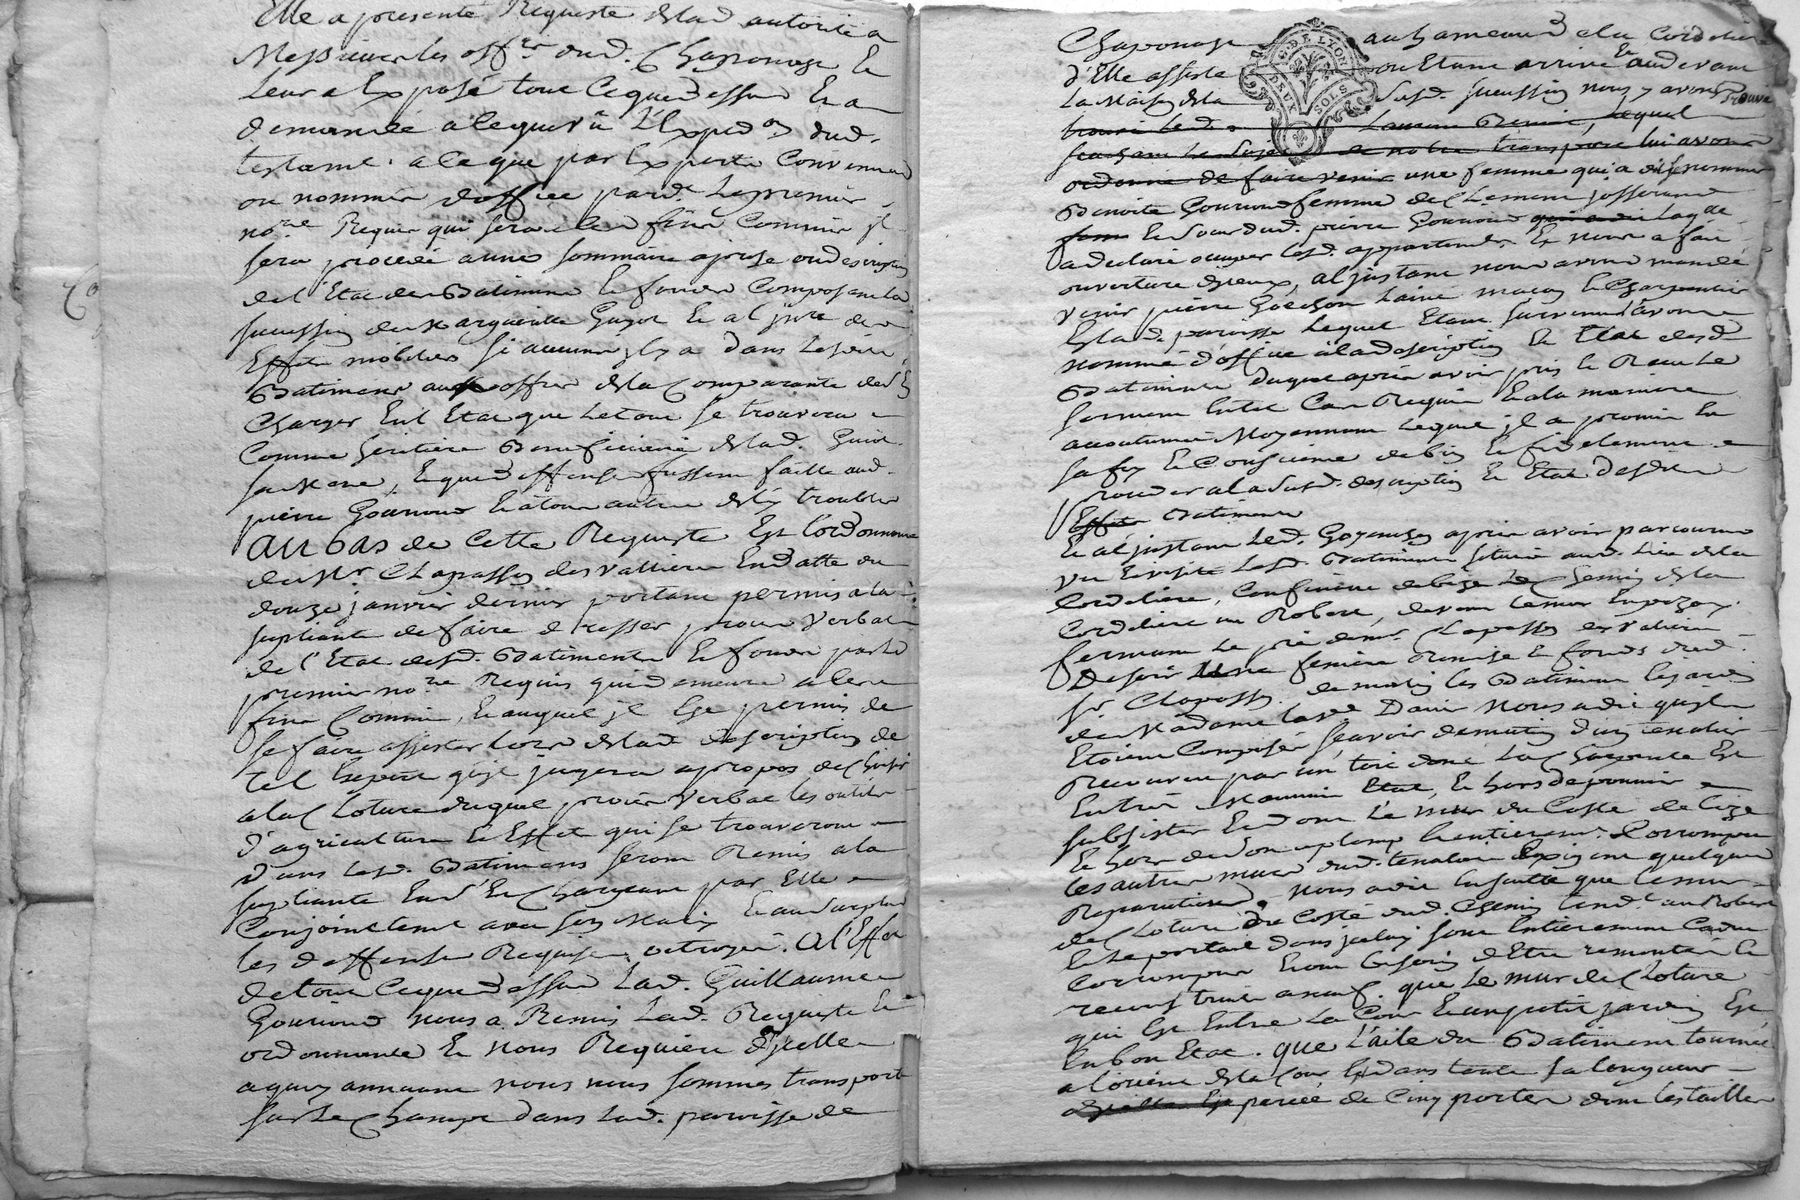 Elle a presenté Requeste de lad. autorité a
Messieurs les off.rs dud. Chaponnay Et
Leur a Exposé tout Ce que dessus Et a
demandé a Ce que vû L'Exped.on dud.
testament. a Ce que par Experts Convenus
ou nommés d'office pard.t Le premier
no.re Requis qui sera a Ces fins Commis jl
sera procedé a un sommaire aprise ou description
de l'Etat des Batimens Et fonds Composant la
succession de Margueritte Guyot Et al jnre des
Effets mobiliers si aucuns jl y a dans Lesdits
Batimens aux offres de la Comparante de s'En
Charger En l'Etat que Le tout se trouvera
Comme heritiere Beneficiaire de lad. Guiot
sa Mere, Et que deffenses fussent faittes aud.
pierre Gouriond Et a tous autres de l'y troubler
au bas de Cette Requeste Est l'ordonnance
de Mr. Clapasson des Vallieres En datte du
douze janvier dernier portant permis a la
supliante de faire dresser procès Verbal
de l'Etat desd. Batimens Et fonds par le
premier no.re Requis qui demeure a Ces
fins Commis, Et auquel jl Est permis de
se faire assister Lors de lad. description de
tel Expert qu'jl jugera apropos de Choisir
a la Cloture duquel procès verbal les outils
d'agriculture Et Effets qui se trouveront
dans lesd. Batimens seront Remis a la
supliante En s'En Chargeant par Elle
Conjointement avec son Mary Et au surplus
les deffenses Requises octroyés. A l'Effet
de tout Ce que dessus Lad. Guillaume
Gouriond nous a Remis Lad. Requeste Et
ordonnance Et nous Requiere d'jcelles
a quoy annuant nous nous sommes transporté
sur le Champ dans Lad. paroisse de
Chaponnay au hameau de la Cordeliere
G. DE LYON
DEUX SOLS
d'Elle assisté ou Etant arrivé Et au devant
La Maison de la susd. succession nous y avons trouvé
trouvé Led. Laurent Benoit, Lequel
sachant Le sujet de notre transport lui avons
ordonné de faire venir une femme qui a dit se nommer
Benoite Gouriond femme de Clement josserand
Et sœur dud. pierre Gouriond qui a dit Laquelle
a declaré occuper lesd. appartemens Et nous a fait
ouverture d'jceux, al jnstant nous avons mandé
venir pierre Goechon Lainé maçon Et Charpentier
Et lad. paroisse Lequel Etant survenu l'avons
nommé d'office a la description Et Etat desd.
Batimens duquel après avoir pris Et Reçu Le
serment En tel Cas Requis Et a la maniere
accoutumée Moyennant Lequel jl a promis En
sa foy Et Conscience de bien Et fidelement
proceder a la susd. description Et Etat desdits
Effets Batimens
Et al jnstant Led. Goyenchon après avoir parcouru
vu Et visité Lesd. Batimens situés aud. Lieu de la
Cordeliere, Confinés de bize Le Chemin de la
Cordeliere au Robert, de vent Le mur
fermant Le pré dem.r Clapasson des Vallieres
De soir Une feniere Remise Et fonds dud.
Sr Clapasson. de matin les Batimens Et jardin
de Madame Lasve David Nous a dit qu'jls
Etoient Composés sçavoir de matin d'un tenalier
Recouvert par un toit dont La Charpente Est
En très Mauvais Etat, Et hors de pouvoir
subsister Et dont Le mur du Cotté de bize
Et hors de son aplomp Et entierem.t Corrompu
Les autres murs dud. tenalier Exigent quelques
Reparations. Nous a dit En suitte que Le mur
de Cloture du Costé dud. Chemin tend.t au Robert
Et Le portail dans jceluy sont Entierement Caducs
Corrompus Et ont besoin d'Etre remontés Et
reconstruits a neuf. que Le mur de Cloture
qui Est Entre La Cour Et un petit jardin Est
En bon Etat. que L'aile du Batiment tourné
a l'orient de la Cour Est dans toute sa longueur
d'jcelle Est percée de Cinq portes dont les tailles